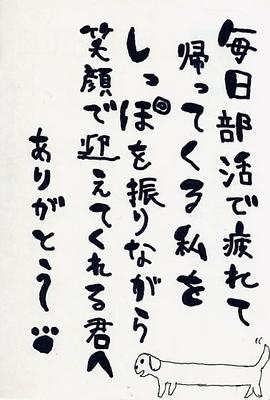 毎日部活で疲れて
帰ってくる私を
しっぽを振りながら
笑顔で迎えてくれる君へ
ありがとう